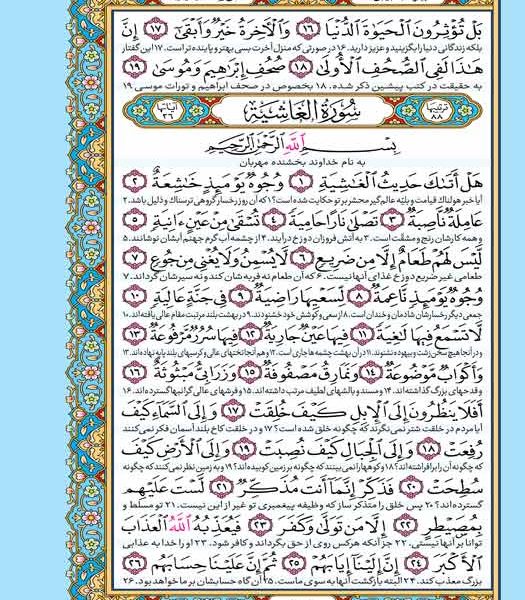 بَلْ تُؤْثِرُونَ الْحَيَوٰةَ الدُّنْيَا ١٦ وَالْآخِرَةُ خَيْرٌ وَأَبْقَىٰ ١٧ إِنَّ
بلکه زندگانی دنیا را بگزینید و عزیز دارید. ۱۶ در صورتی که منزل آخرت بسی بهتر و پاینده تر است. ۱۷ این گفتار
هَٰذَا لَفِي الصُّحُفِ الْأُولَىٰ ١٨ صُحُفِ إِبْرَاهِيمَ وَمُوسَىٰ ١٩
به حقیقت در کتب پیشین ذکر شده. ۱۸ بخصوص در صحف ابراهیم و تورات موسی ۱۹
ترتیبها ۸۸ سُورَةُ الْغَاشِيَة آیاتها ۲۶
بِسْمِ اللَّهِ الرَّحْمَٰنِ الرَّحِيمِ
به نام خداوند بخشنده مهربان
هَلْ أَتَىٰكَ حَدِيثُ الْغَاشِيَةِ ١ وُجُوهٌ يَوْمَئِذٍ خَاشِعَةٌ ٢
آیا خبر هولناک قیامت و بلیّه عالم گیر محشر بر تو حکایت شده است؟ ۱ که آن روز رخسار گروهی ترسناک و ذلیل باشد. ۲
عَامِلَةٌ نَاصِبَةٌ ٣ تَصْلَىٰ نَارًا حَامِيَةً ٤ تُسْقَىٰ مِنْ عَيْنٍ آنِيَةٍ ٥
و همه کارشان رنج و مشقت است. ۳ به آتش فروزان دوزخ درآیند. ۴ از چشمه آب گرم جهنم آبشان نوشانند. ۵
لَّيْسَ لَهُمْ طَعَامٌ إِلَّا مِنْ ضَرِيعٍ ٦ لَّا يُسْمِنُ وَلَا يُغْنِي مِنْ جُوعٍ ٧
طعامی غیر ضریع دوزخ غذای آنها نیست. ۶ که آن طعام نه فربه شان کند و نه سیرشان گرداند. ۷
وُجُوهٌ يَوْمَئِذٍ نَّاعِمَةٌ ٨ لِّسَعْيِهَا رَاضِيَةٌ ٩ فِي جَنَّةٍ عَالِيَةٍ ١٠
جمعی دیگر رخسارشان شادمان و خندان است. ۸ از سعی و کوشش خود خشنودند. ۹ در بهشت بلند مرتبت مقام عالی یافته اند. ۱۰
لَّا تَسْمَعُ فِيهَا لَاغِيَةً ١١ فِيهَا عَيْنٌ جَارِيَةٌ ١٢ فِيهَا سُرُرٌ مَّرْفُوعَةٌ ١٣
و در آنجا هیچ سخن زشت و بیهوده نشنوند. ۱۱ در آن بهشت چشمه ها جاری است. ۱۲ و هم آنجا تختهای عالی و کرسیهای بلند پایه نهاده اند. ۱۳
وَأَكْوَابٌ مَّوْضُوعَةٌ ١٤ وَنَمَارِقُ مَصْفُوفَةٌ ١٥ وَزَرَابِيُّ مَبْثُوثَةٌ ١٦
و قدحهای بزرگ گذاشته اند. ۱۴ و مسند و بالشهای لطیف مرتب داشته اند. ۱۵ و فرشهای عالی گرانبها گسترده اند. ۱۶
أَفَلَا يَنْظُرُونَ إِلَى الْإِبِلِ كَيْفَ خُلِقَتْ ١٧ وَإِلَى السَّمَاءِ كَيْفَ
آیا مردم در خلقت شتر نمی نگرند که چگونه خلق شده است؟ ۱۷ و در خلقت کاخ بلند آسمان فکر نمی کنند
رُفِعَتْ ١٨ وَإِلَى الْجِبَالِ كَيْفَ نُصِبَتْ ١٩ وَإِلَى الْأَرْضِ كَيْفَ
که چگونه آن را برافراشته اند؟ ۱۸ و کوهها را نمی بینند که چگونه بر زمین کوبیده اند؟ ۱۹ و به زمین نظر نمی کنند که چگونه
سُطِحَتْ ٢٠ فَذَكِّرْ إِنَّمَا أَنْتَ مُذَكِّرٌ ٢١ لَّسْتَ عَلَيْهِمْ
گسترده اند؟ ۲۰ پس خلق را متذکر ساز که وظیفه پیغمبری تو غیر از این نیست. ۲۱ تو مسلط و
بِمُصَيْطِرٍ ٢٢ إِلَّا مَنْ تَوَلَّىٰ وَكَفَرَ ٢٣ فَيُعَذِّبُهُ اللَّهُ الْعَذَابَ
توانا بر آنها نیستی. ۲۲ جز آنکه هرکس روی از حق بگرداند و کافر شود. ۲۳ او را خدا به عذابی
الْأَكْبَرَ ٢٤ إِنَّ إِلَيْنَا إِيَابَهُمْ ٢٥ ثُمَّ إِنَّ عَلَيْنَا حِسَابَهُمْ ٢٦
بزرگ معذب کند. ۲۴ البته بازگشت آنها به سوی ماست. ۲۵ آن گاه حسابشان بر ما خواهد بود. ۲۶